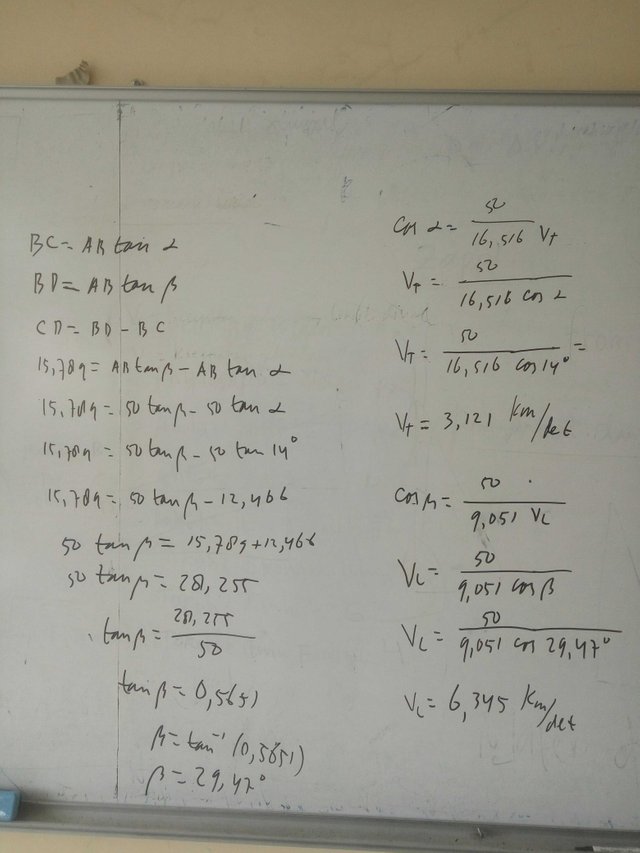 BC = AB tan α
BD = AB tan β
CD = BD - BC
15,789 = AB tan β - AB tan α
15,789 = 50 tan β - 50 tan α
15,789 = 50 tan β - 50 tan 14°
15,789 = 50 tan β - 12,466
50 tan β = 15,789 + 12,466
50 tan β = 28,255
tan β = 28,255 / 50
tan β = 0,5651
β = tan⁻¹ (0,5651)
β = 29,47°
cos α = 50 / 16,516 V₁
V₁ = 50 / 16,516 cos α
V₁ = 50 / 16,516 cos 14° =
V₁ = 3,121 km/det
cos β = 50 / 9,051 V₂
V₂ = 50 / 9,051 cos β
V₂ = 50 / 9,051 cos 29,47°
V₂ = 6,345 km/det